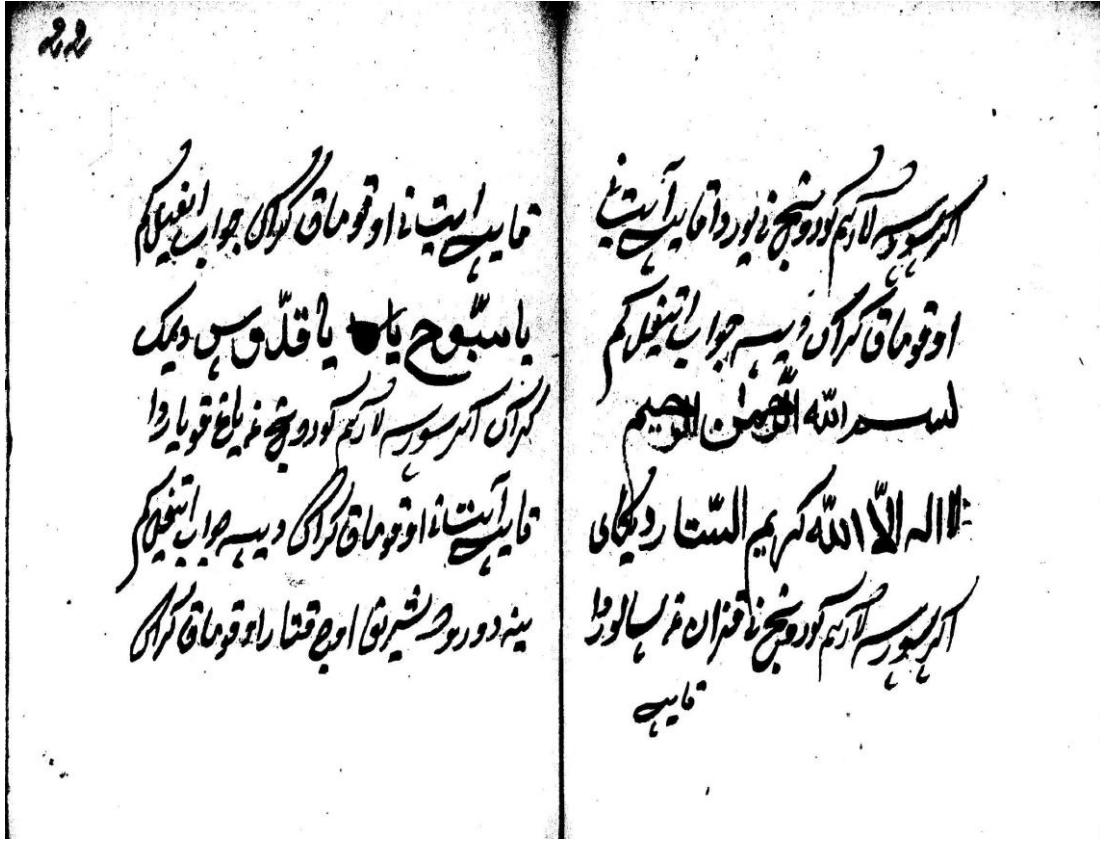 اکر سورسه لارکیم کورونج نی یوردا قایسی آیت نی
اوقوماق کراک دیسه جواب ایتغیل کیم
بسم الله الرّحمٰن الرحیم
لا اله الّا اللّه کریم السّتار دیکای
اکر سورسه لارکیم کورونج نی قزان غه سالوردا
قایسی
22
قایسی ایت نی اوقوماق کراک جواب ایتغیل کیم
یا سبّوح یا یا قدّوس دیمک
کراک اکر سورسه لارکیم کورونج غه یاغ قویاردا
قایسی آیت نی اوقوماق کراک دیسه جواب ایتغیل کیم
ینه دورود شریف نی اوچ اوقوماق کراک